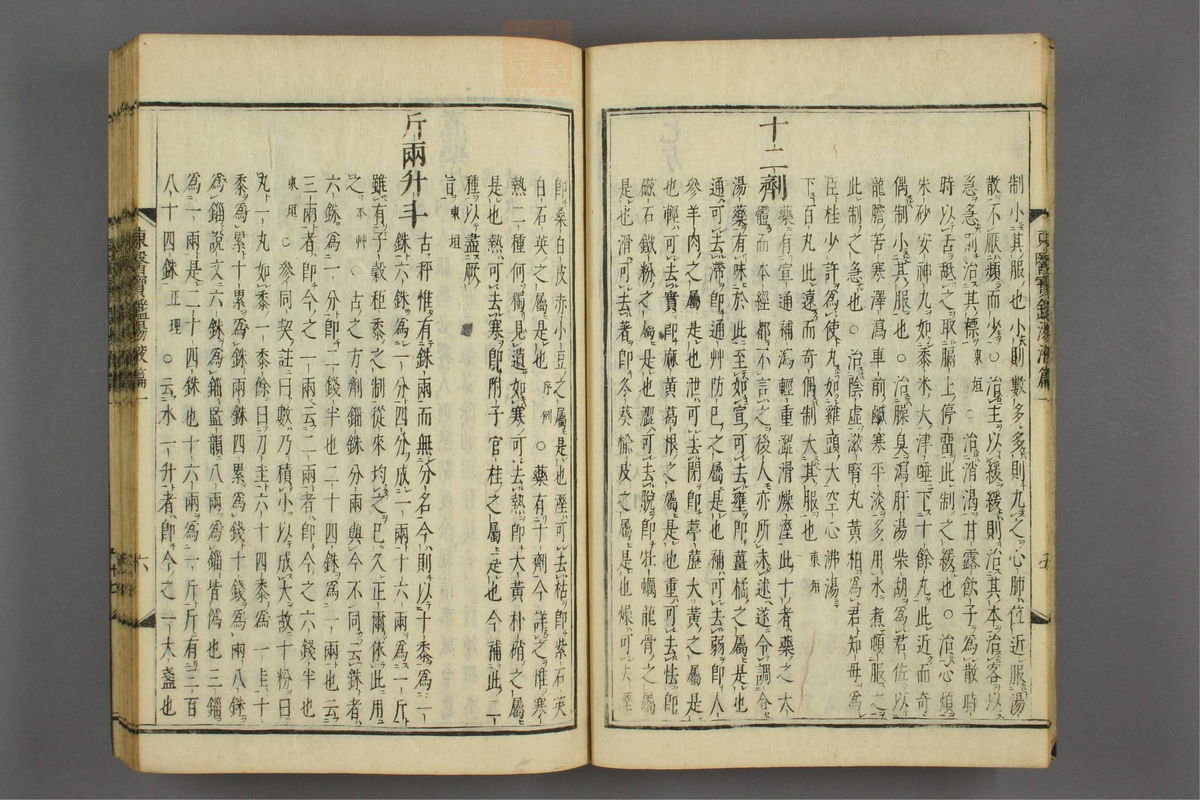 制小其服也小則數多多則九之心肺位近服湯
散不厭頻而少○治主以緩緩則治其本治客以
急急則治其標東垣○治消渴甘露飲子爲散時
時以舌舐之取膈上停留此制之緩也○治心煩
朱砂安神丸如黍米大津唾下十餘丸此近而奇
偶制小其服也○治臊臭瀉肝湯柴胡爲君佐以
龍膽苦寒澤瀉車前鹹寒平淡多用水煮頓服之
此制之急也○治陰虛滋腎丸黃柏爲君知母爲
臣桂少許爲使丸如雞頭大空心沸湯
下百丸此遠而奇偶制大其服也東垣
十二劑
藥有宣通補瀉輕重澀滑燥溼此十者藥之大
體而本經都不言之後人亦所未述遂令調合
湯藥有昧於此至如宣可去壅卽薑橘之屬是也
通可去滯卽通艸防己之屬是也補可去弱卽人
參羊肉之屬是也泄可去閉卽葶藶大黃之屬是
也輕可去實卽麻黃葛根之屬是也重可去怯卽
磁石鐵粉之屬是也澀可去脫卽牡蠣龍骨之屬
是也滑可去著卽冬葵楡皮之屬是也燥可去溼
卽桑白皮赤小豆之屬是也溼可去枯卽紫石英
白石英之屬是也序例○藥有十劑今詳之惟寒
熱二種何獨見遺如寒可去熱卽大黃朴硝之屬
是也熱可去寒卽附子官桂之屬是也今補此二
種以盡厥
旨東垣
斤兩升斗
古秤惟有銖兩而無分名今則以十黍爲一
銖六銖爲一分四分成一兩十六兩爲一斤
雖有子穀秬黍之制從來均之已久正爾依此用
之本艸○古之方劑錙銖分兩與今不同云銖者
六銖爲一分卽二錢半也二十四銖爲一兩也云
三兩者卽今之一兩云二兩者卽今之六錢半也
東垣○參同契註曰數乃積小以成大故十粉曰
丸一丸如黍一黍餘曰刀圭六十四黍爲一圭十
黍爲累十累爲銖兩銖四累爲錢十錢爲兩八銖
爲錙說文六銖爲錙監韻八兩爲錙皆譌也三錙
爲一兩是二十四銖也十六兩爲一斤斤有三百
八十四銖正理○云水一升者卽今之一大盞也
東醫寶鑑湯液篇一
六
東醫寶鑑湯液篇一